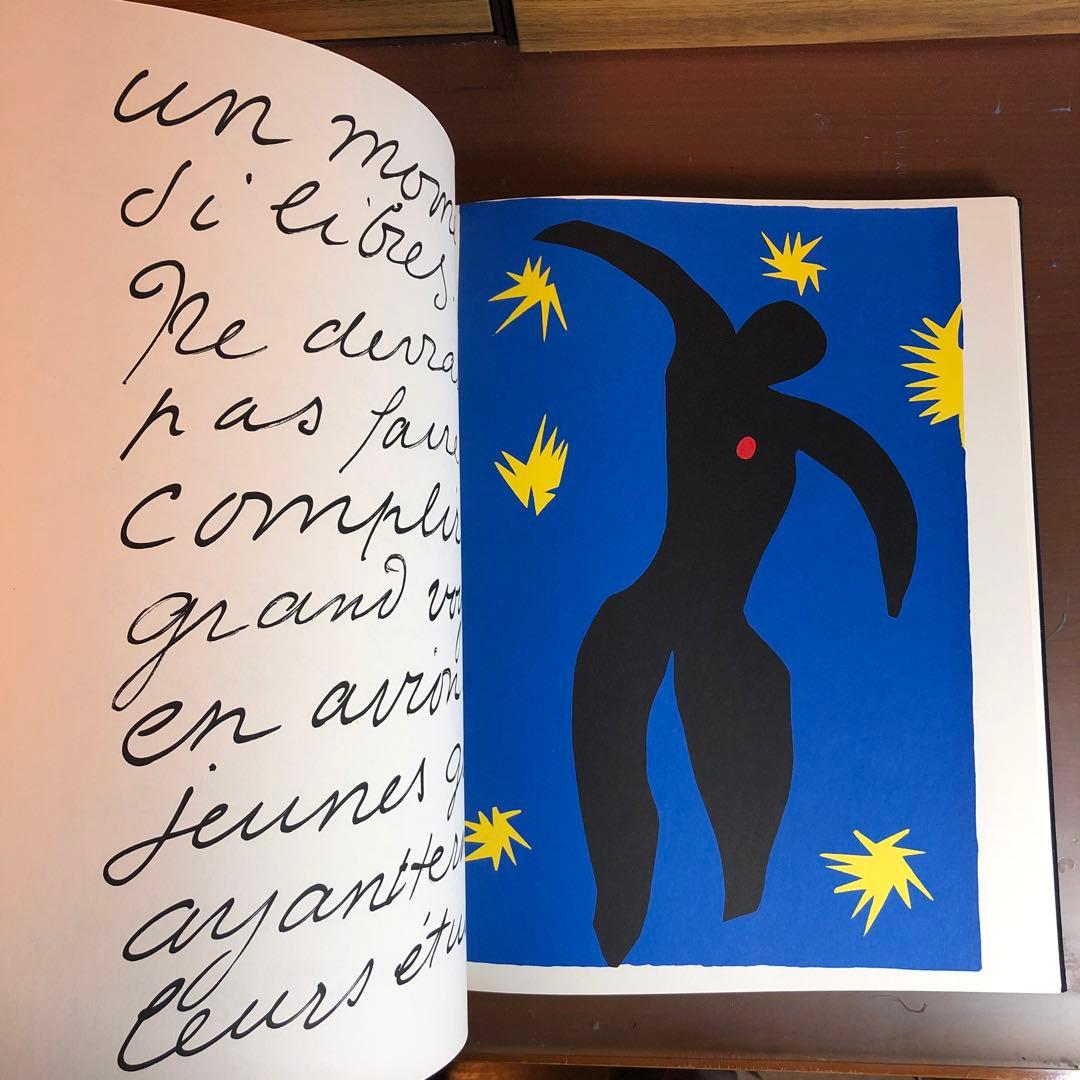 un mom
si libres.
Ne devra
pas faire
complir
grand voy
en avion
jeunes g
ayant ter
leurs étu